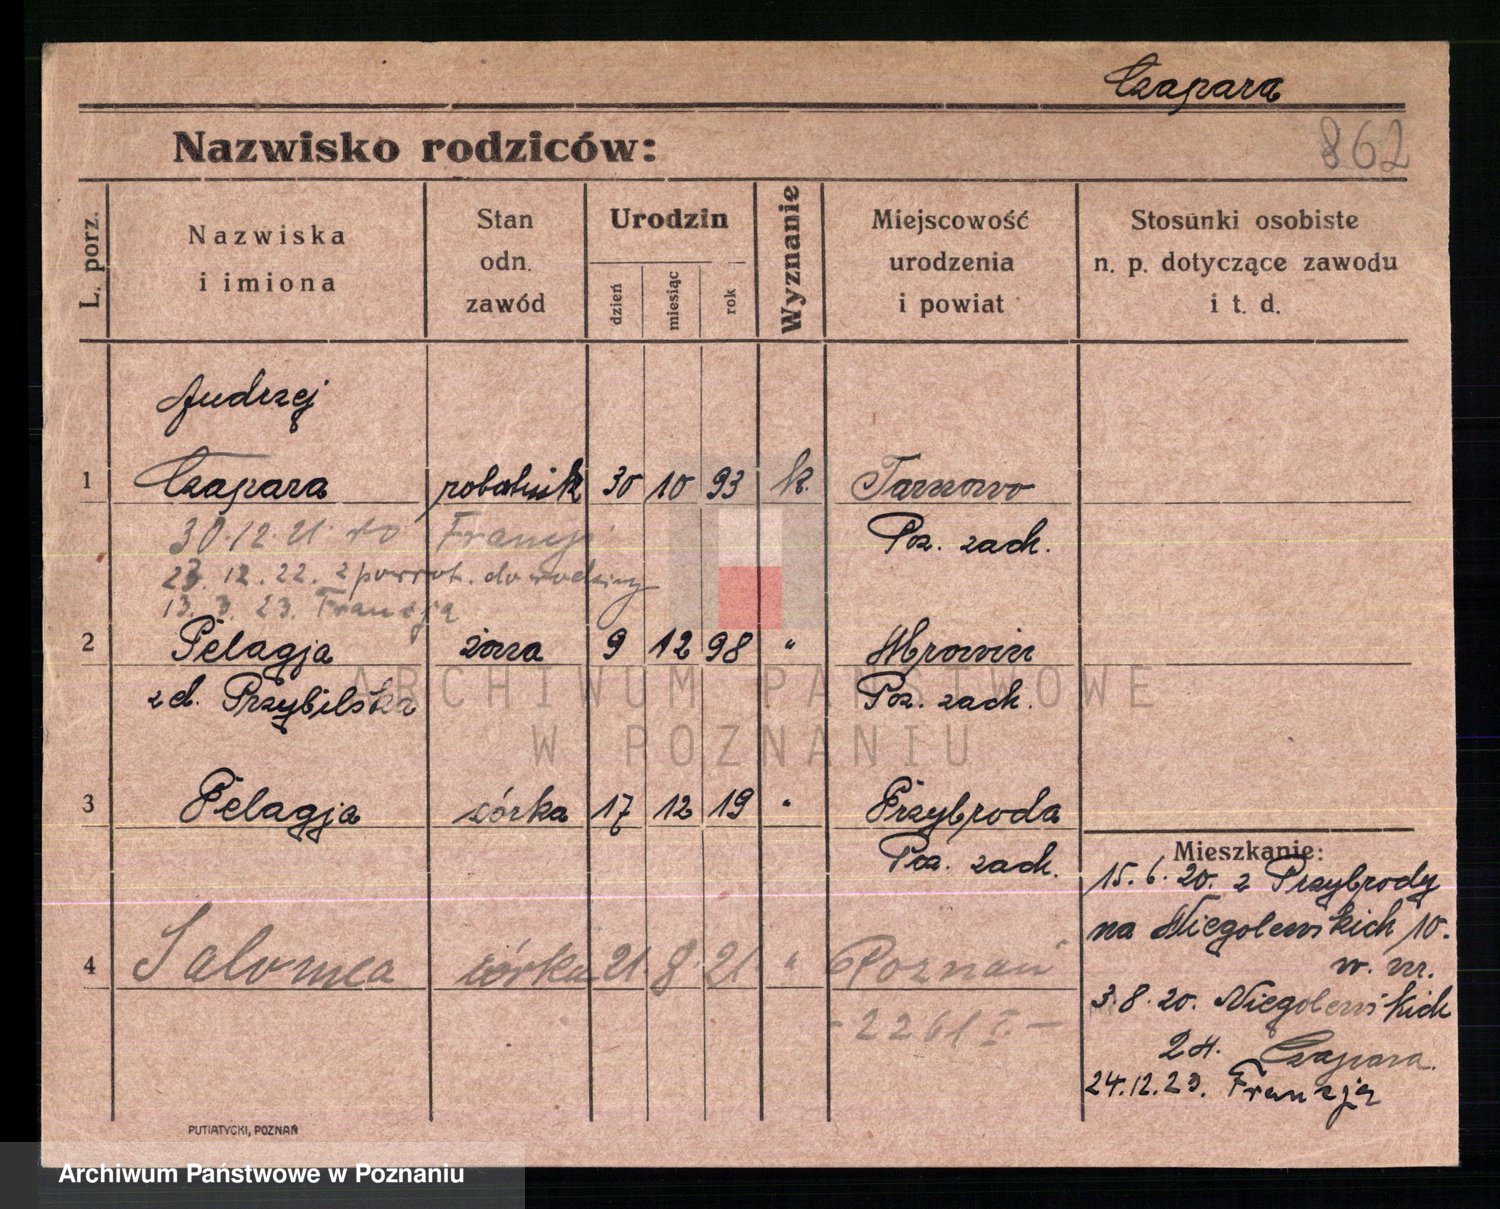 Czapara
Nazwisko rodziców:
862
L. porz.
Nazwiska
i imiona
Stan
odn.
zawód
Urodzin
dzień
miesiąc
rok
Wyznanie
Miejscowość
urodzenia
i powiat
Stosunki osobiste
n. p. dotyczące zawodu
i t. d.
Andrzej
1 Czapara robotnik 30 10 93 k. Tarnowo
Poz. zach.
30.12.21 do Francji
23.12.22. z powrot. do rodziny
13.3.23. Francja
2 Pelagja żona 9 12 98 " Mrowin
z d. Przybilska Poz. zach.
3 Pelagja córka 17 12 19 " Przybroda
Poz. zach.
4 Salomea córka 21. 8 21 " Poznań
- 2261 I. -
Mieszkanie:
15.6.20. z Przybrody
na Niegolewskich 10.
w. nr.
3.8.20. Niegolewskich
24. Czapara.
24.12.23. Francja
PUTIATYCKI, POZNAŃ
ARCHIWUM PAŃSTWOWE
W POZNANIU
Archiwum Państwowe w Poznaniu